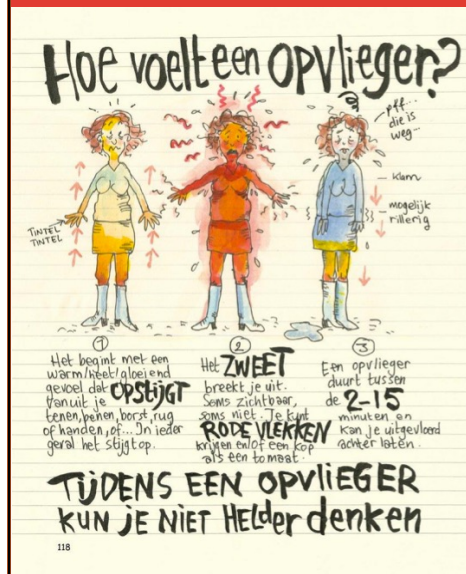 Hoe voelt een OPVlieger?
pff...
die is
weg...
klam
mogelijk
rillerig
TINTEL
TINTEL
1
Het begint met een
warm/heet/gloeiend
gevoel dat OPSTIJGT
vanuit je
tenen, benen, borst, rug
of handen, of... In ieder
geval het stijgt op.
2
Het ZWEET
breekt je uit.
Soms zichtbaar,
soms niet. Je kunt
RODE VLEKKEN
krijgen en/of een kop
als een tomaat.
3
Een opvlieger
duurt tussen
de 2-15
minuten en
kan je uitgevloerd
achter laten.
TIJDENS EEN OPVLIEGER
KUN JE NIET HELDER denken
118